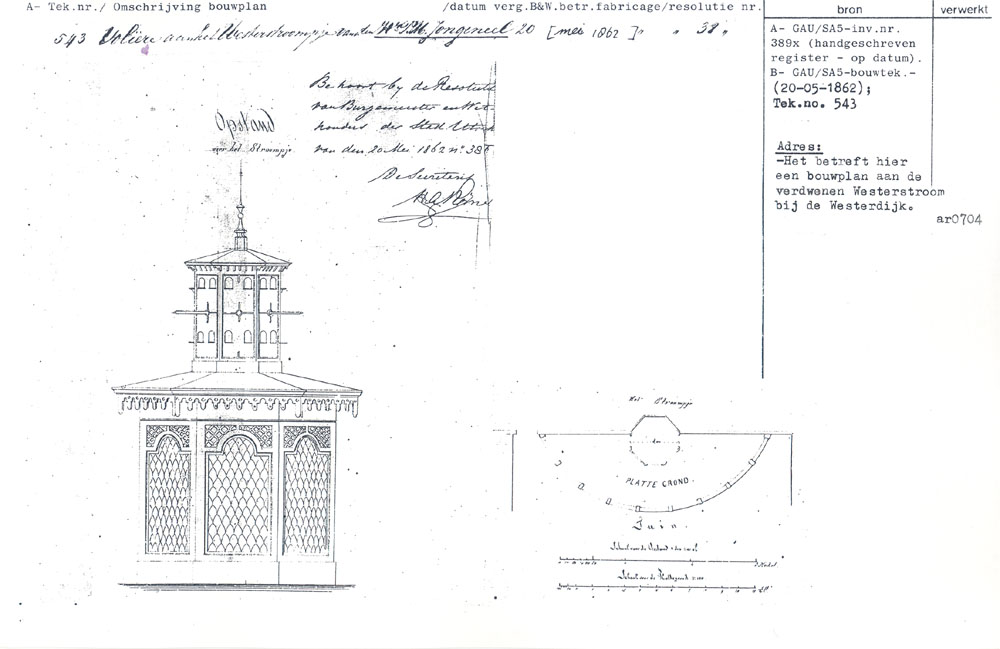 A- Tek.nr./ Omschrijving bouwplan /datum verg.B&W.betr.fabricage/resolutie nr. bron verwerkt
543 Volière aan het Westerstroompje van den Jongeneel 20 [mei 1862] " " 38 "
A- GAU/SA5-inv.nr.
389x (handgeschreven
register - op datum).
B- GAU/SA5-bouwtek.-
(20-05-1862);
Tek.no. 543
Adres:
-Het betreft hier
een bouwplan aan de
verdwenen Westerstroom
bij de Westerdijk.
ar0704
Behoort by de Resolutie
van Burgemeester en Wet-
houders der Stad Utrech
van den 20 Mei 1862 nº 38
De Secretaris
Opstand
voor het Stroompje
Het Stroompje
PLATTE GROND.
Tuin.
Schaal van de Opstand
Schaal van de Plattegrond